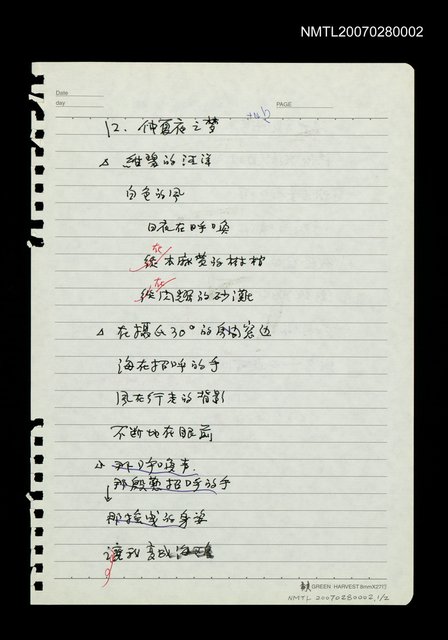 NMTL20070280002
Date
day
PAGE
12. 仲夏夜之梦
△ 维碧的汪洋
白色的风
日夜在呼唤
在
麻黄的树梢
在
闪耀的砂滩
△ 在摄氏30°的窗边
海在招呼的手
风在行走的背影
不断地在眼前
△ 那呼唤声.
那殷懃招呼的手
那摇曳的身姿
让我变成海
GREEN HARVEST 8mmX27行
NMTL 20070280002, 1/2